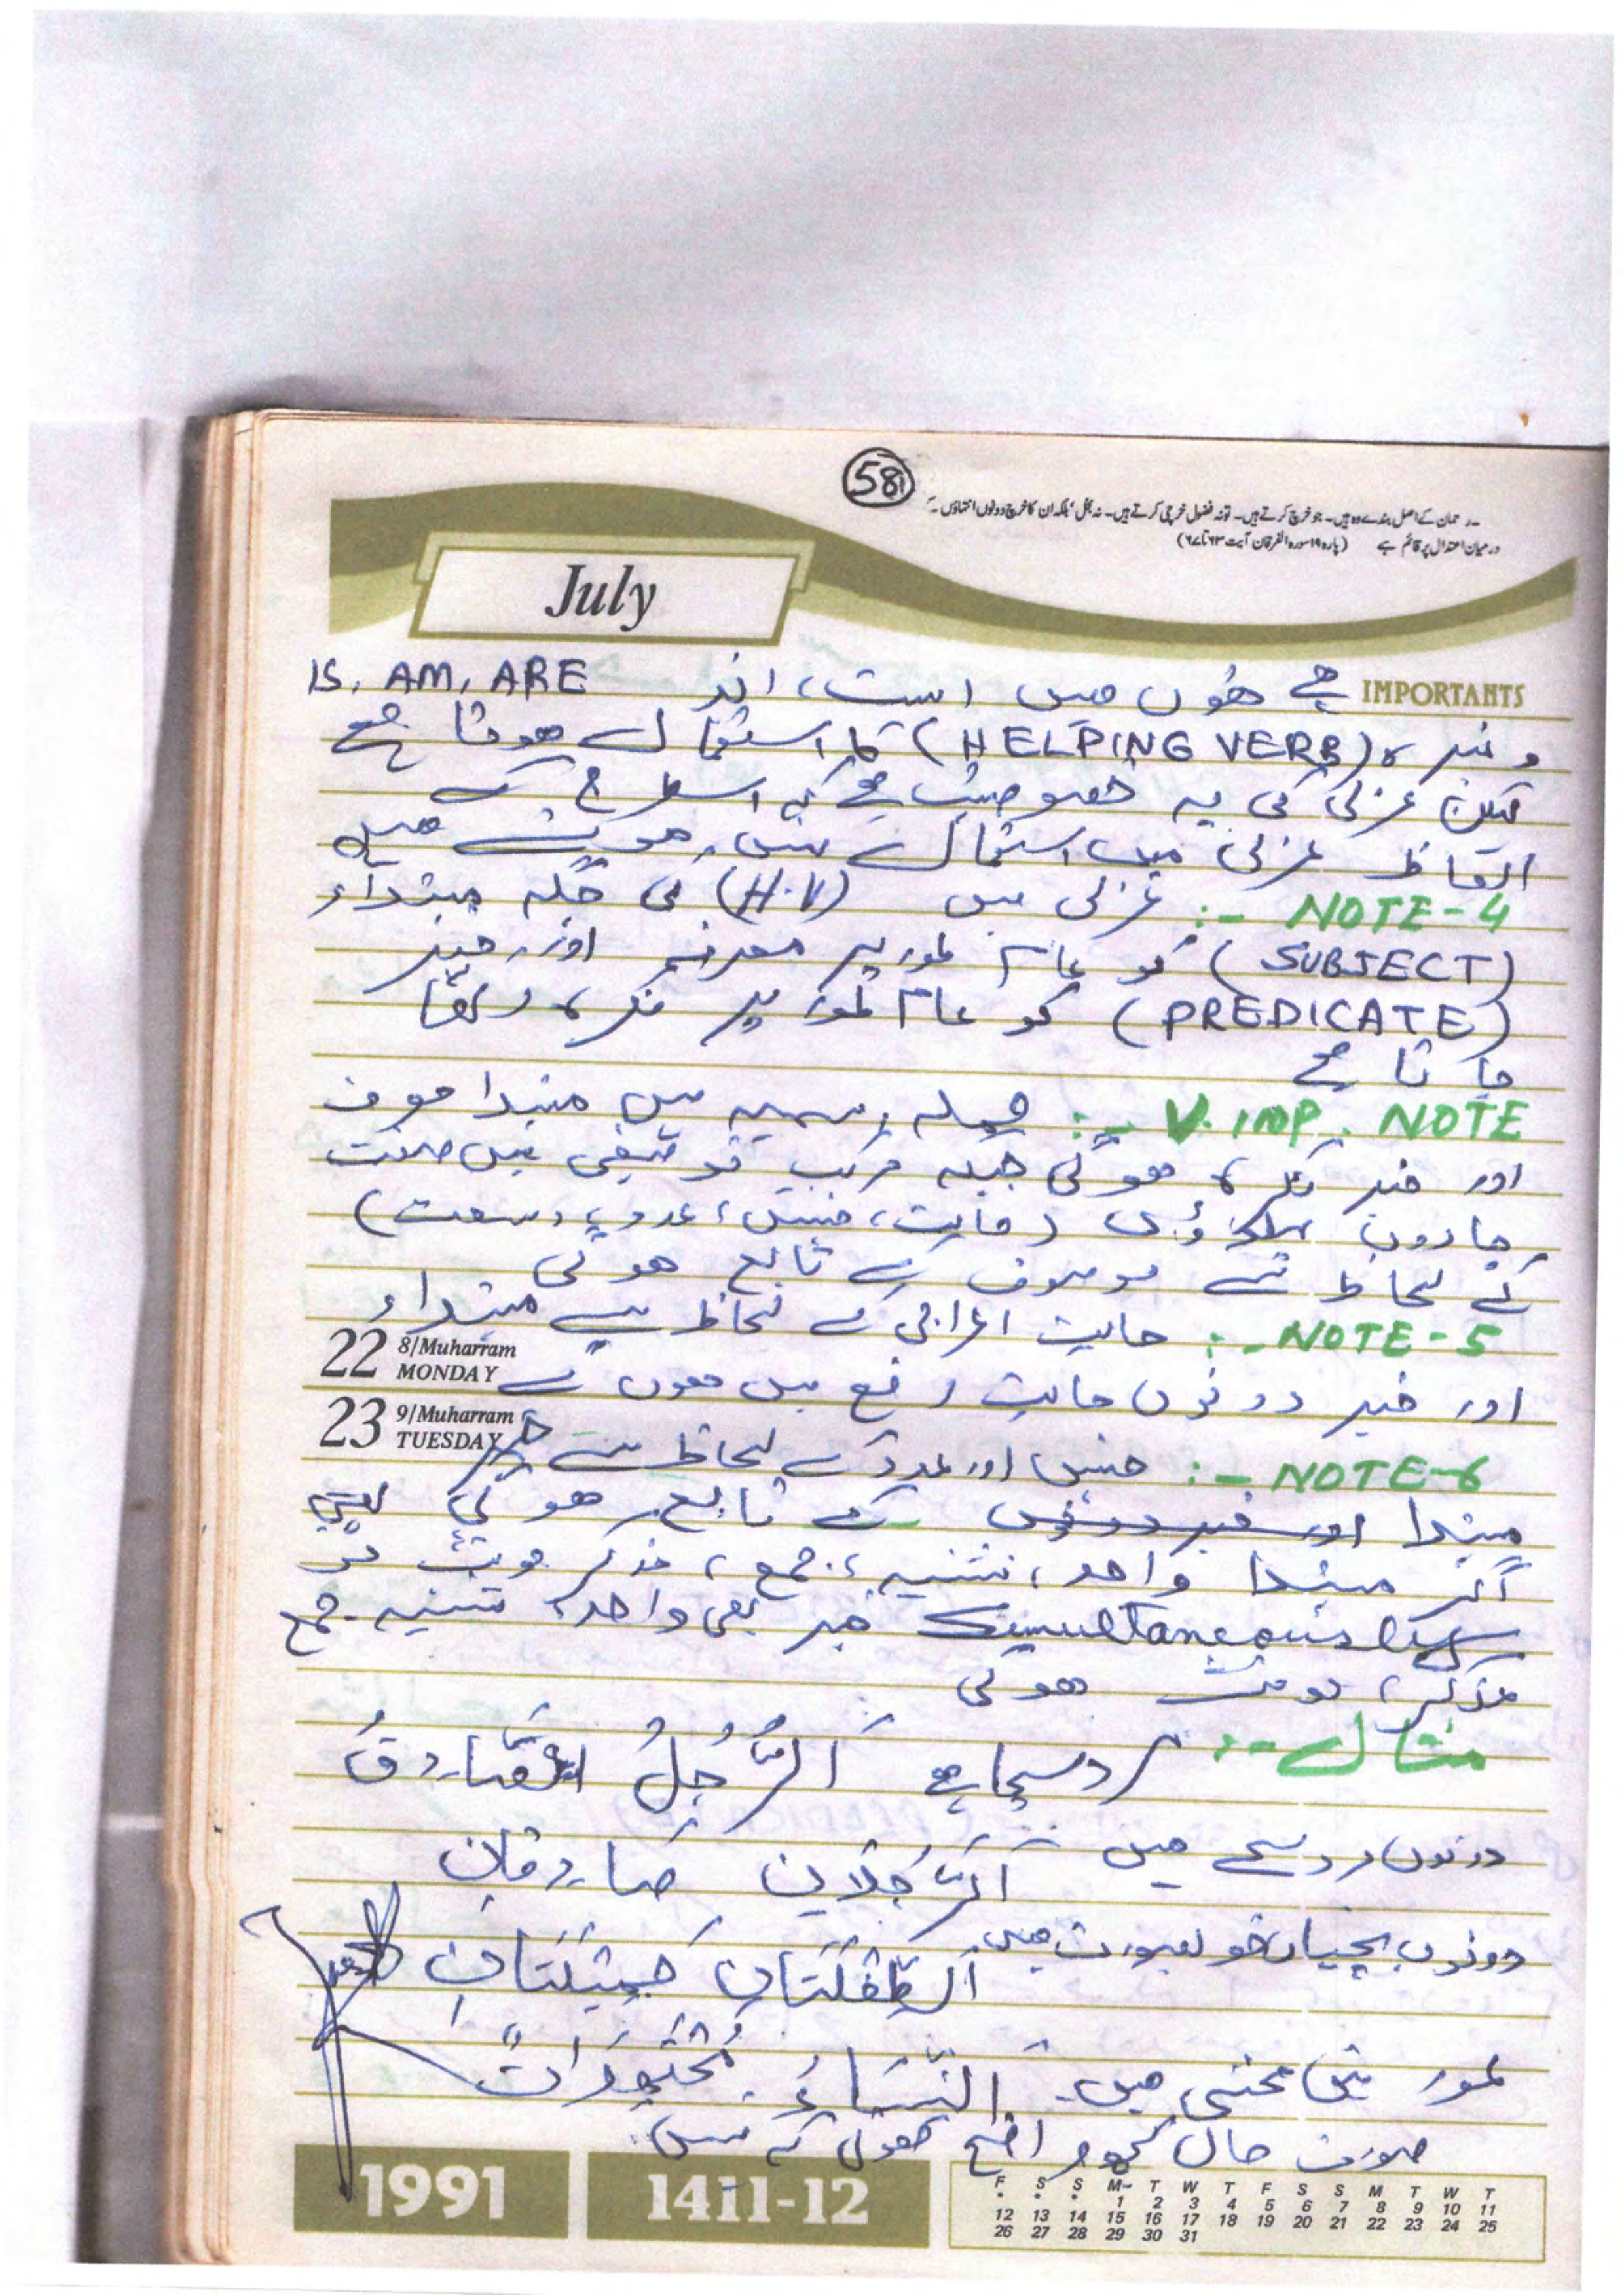 58
رحمان کے اصل بندے وہ ہیں۔ جو خرچ کرتے ہیں۔ تو نہ فضول خرچی کرتے ہیں۔ نہ بخل، بلکہ ان کا خرچ دونوں انتہاؤں کے
درمیان اعتدال پر قائم ہے (پارہ ۱۹ سورہ الفرقان آیت ۶۳ تا ۶۷)
July
IMPORTANTS
ہے ہوں میں است، اند IS, AM, ARE
وغیرہ (HELPING VERB) کا استعمال ہوتا ہے
لیکن عربی کی یہ خصوصیت ہے کہ اسطرح کے
الفاظ عربی میں استعمال نہیں ہوتے ہیں
NOTE-4 :- عربی میں (H.V) کی جگہ مبتداء
(SUBJECT) کو عام طور پر معرفہ اور خبر
(PREDICATE) کو عام طور پر نکرہ رکھا
جاتا ہے
V.IMP. NOTE :- جملہ اسمیہ میں مبتدا معرف
اور خبر نکرہ ہوگی جبکہ مرکب توصیفی میں صفت
چاروں پہلوؤں (حالت، جنس، عدد، وسعت)
کے لحاظ سے موصوف کے تابع ہوگی
NOTE-5 :- حالت اعرابی کے لحاظ سے مبتداء
22 8/Muharram MONDAY
اور خبر دونوں حالت رفع میں ہوں گے
23 9/Muharram TUESDAY
NOTE-6 :- جنس اور عدد کے لحاظ سے خبر
مبتدا اور خبر دونوں کے تابع ہوگی یعنی
اگر مبتدا واحد، تثنیہ، جمع، مذکر مونث تو
Simultaneously خبر بھی واحد، تثنیہ۔ جمع
مذکر، مونث ہوگی
مثال :- مرد سچا ہے اَلرَّجُلُ الصَّادِقُ
دونوں مرد سچے ہیں اَلرَّجُلَانِ صَادِقَانِ
دونوں بچیاں خوبصورت ہیں اَلطِّفْلَتَانِ جَمِیْلَتَانِ
عورتیں محنتی ہیں۔ اَلنِّسَاءُ مُجْتَهِدَاتٌ
صورت حال کچھ واضح
1991
1411-12
F S S M T W T F S S M T W T
* * * 1 2 3 4 5 6 7 8 9 10 11
12 13 14 15 16 17 18 19 20 21 22 23 24 25
26 27 28 29 30 31